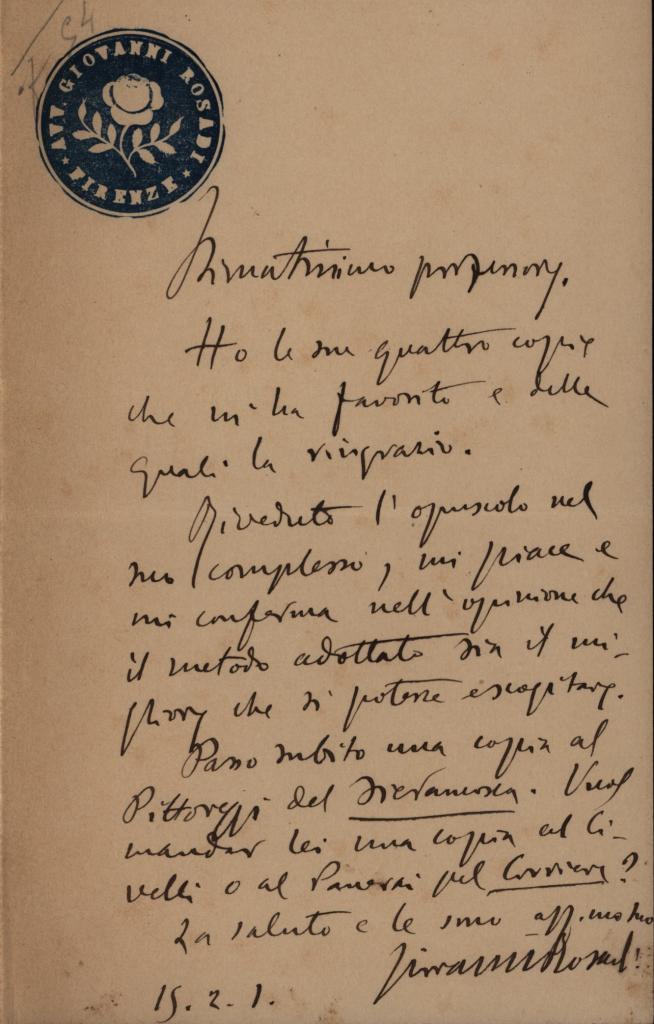 AVV. GIOVANNI ROSADI
★ FIRENZE ★
Stimatissimo professore.
Ho le sue quattro copie
che mi ha favorito e delle
quali la ringrazio.
Riveduto l'opuscolo nel
suo complesso, mi piace e
mi conferma nell'opinione che
il metodo adottato sia il mi-
gliore che si potesse escogitare.
Passo subito una copia al
Pittoreggi del Fieramosca. Vuol
mandar lei una copia al Ci-
velli o al Panerai pel Corriere?
La saluto e le sono aff.mo suo
Giovanni Rosadi
15. 2. 1.